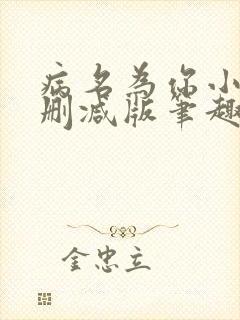 病名为你小
删减版笔趣
金忠立